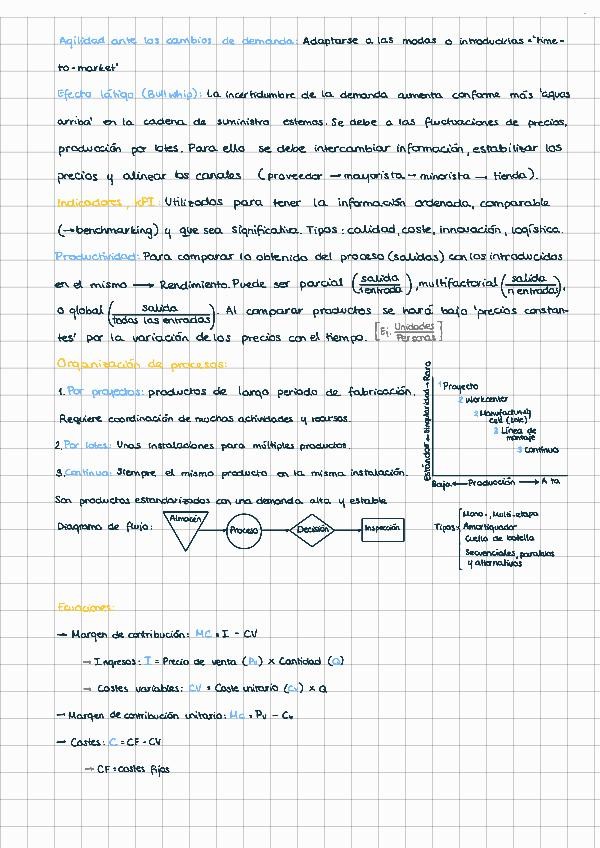 Agilidad ante los cambios de demanda: Adaptarse a las modas o introducirlas = 'time-
to-market'
Efecto látigo (Bullwhip): La incertidumbre de la demanda aumenta conforme más 'aguas
arriba' en la cadena de suministro estemos. Se debe a las fluctuaciones de precios,
producción por lotes. Para ello se debe intercambiar información, estabilizar los
precios y alinear los canales (proveedor → mayorista → minorista → tienda).
Indicadores, KPI: Utilizados para tener la información ordenada, comparable
(→benchmarking) y que sea significativa. Tipos: calidad, coste, innovación, logística.
Productividad: Para comparar lo obtenido del proceso (salidas) con los introducidos
en el mismo → Rendimiento. Puede ser parcial (salida / 1 entrada), multifactorial (salida / n entradas),
o global (salida / todas las entradas). Al comparar productos se hará bajo 'precios constan-
tes' por la variación de los precios con el tiempo. [Ej. Unidades / Personas]
Organización de procesos:
1. Por proyectos: productos de largo periodo de fabricación.
Requiere coordinación de muchas actividades y recursos.
2. Por lotes: Unas instalaciones para múltiples productos.
3. Continua: Siempre el mismo producto en la misma instalación.
Son productos estandarizados con una demanda alta y estable
Estándar ← Singularidad → Raro
1 Proyecto
2 Workcenter
2 Manufacturing
cell (lote)
2 Línea de
montaje
3 Continuo
Baja ← Producción → Alta
Diagrama de flujo: Almacén Proceso Decisión Inspección
Tipos: Mono-, Multi-etapa
Amortiguador
Cuello de botella
Secuenciales, paralelos
y alternativos
Ecuaciones:
→ Margen de contribución: MC = I - CV
→ Ingresos: I = Precio de venta (Pv) x Cantidad (Q)
→ Costes variables: CV = Coste unitario (Cv) x Q
→ Margen de contribución unitario: Mc = Pv - Cv
→ Costes: C = CF - CV
→ CF = costes fijos